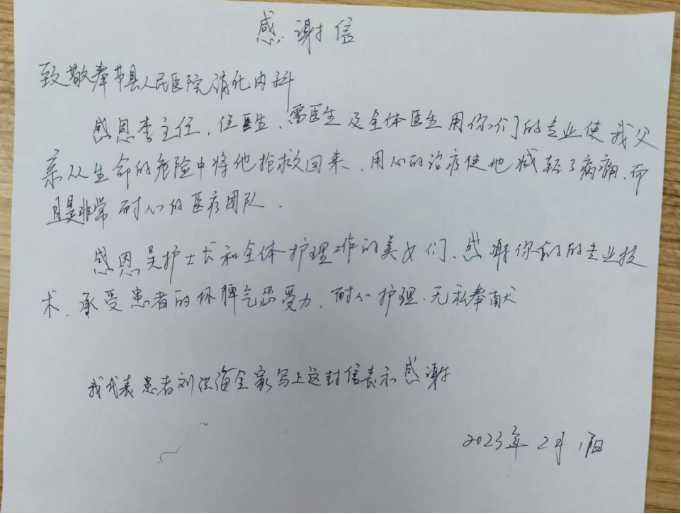 感谢信
致敬奉节县人民医院消化内科
感恩李主任、任医生、雷医生及全体医生用你们的专业使我父
亲从生命的危险中将他抢救回来、用心的治疗使他减轻了病痛、而
且是非常耐心的医疗团队.
感恩吴护士长和全体护理工作的美女们、感谢你们的专业技
术、承受患者的坏脾气 受力、耐心护理、无私奉献
我代表患者刘 海全家写上这封信表示感谢
2023年2月 日